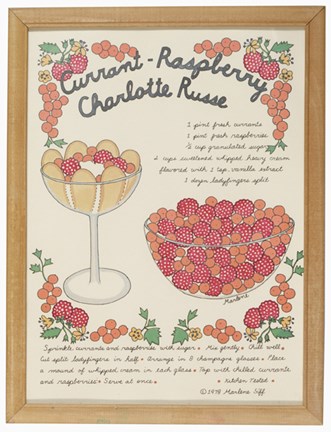 Currant-Raspberry
Charlotte Russe
1 pint fresh currants
1 pint fresh raspberries
½ cup granulated sugar
2 cups sweetened whipped heavy cream
flavored with 1 tsp. vanilla extract
1 dozen ladyfingers split
Marlene
Sprinkle currants and raspberries with sugar • Mix gently • Chill well •
Cut split ladyfingers in half • Arrange in 8 champagne glasses • Place
a mound of whipped cream in each glass • Top with chilled currants
and raspberries • Serve at once • • Kitchen Tested •
© 1978 Marlene Siff